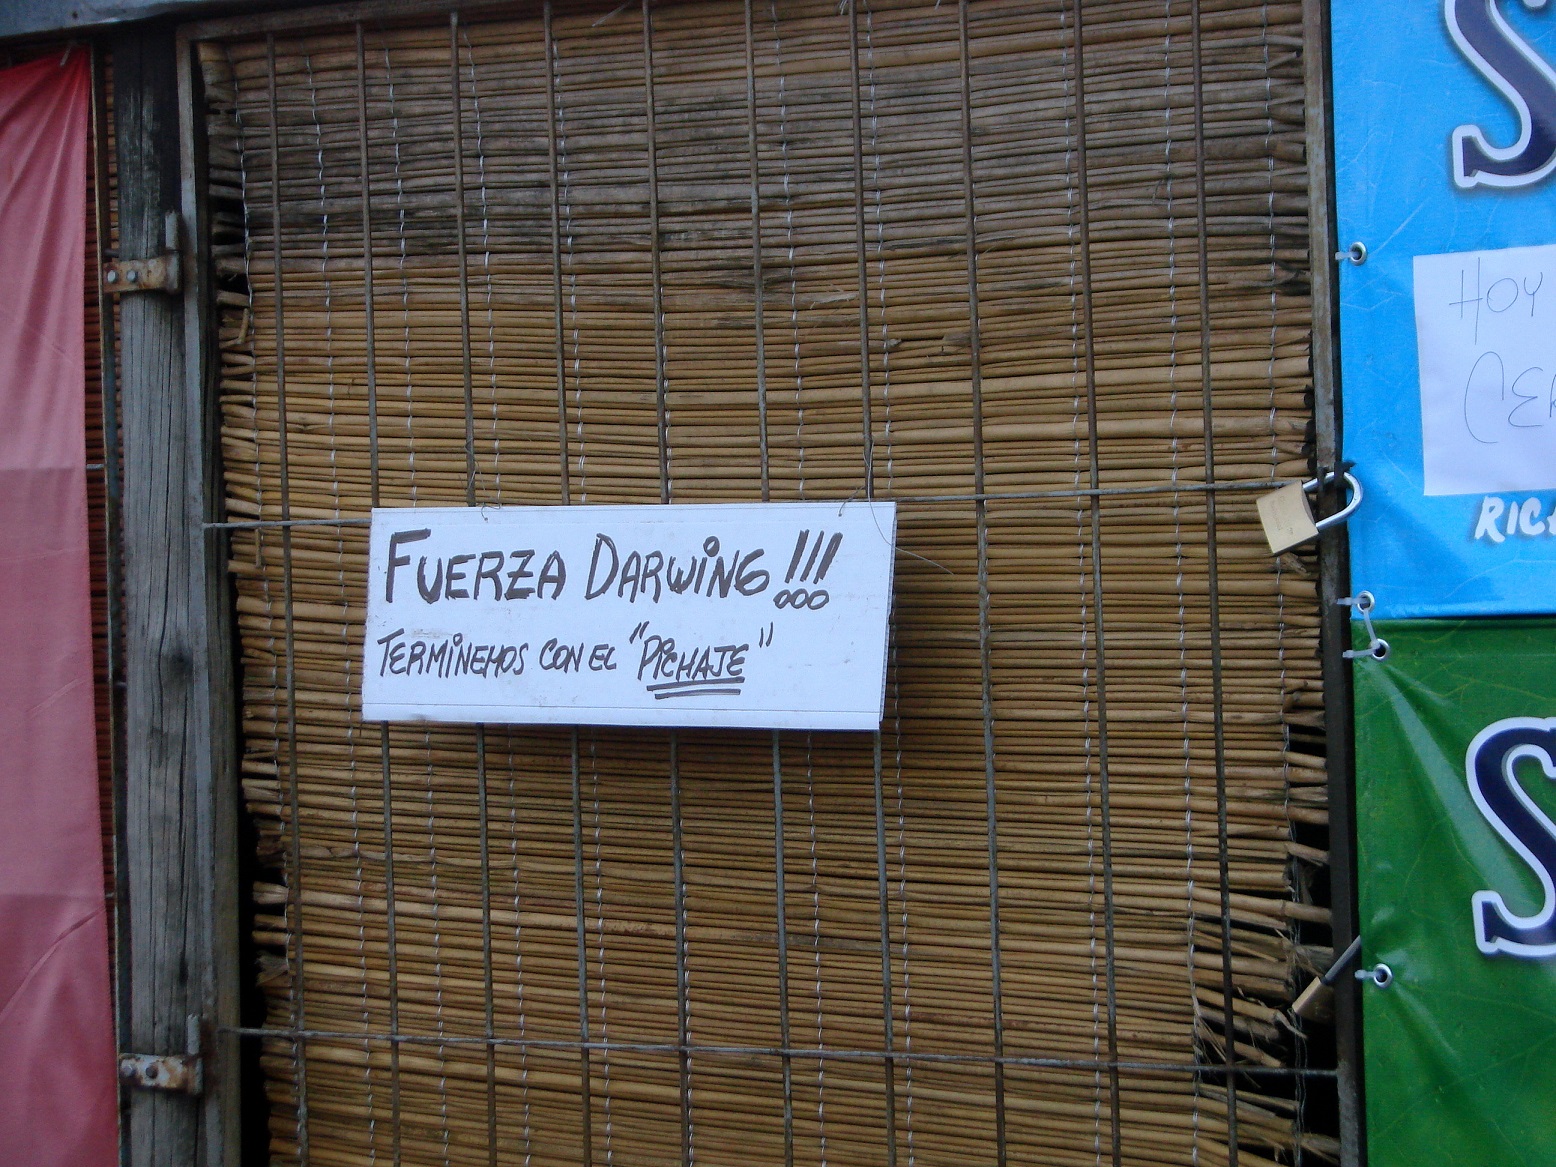 FUERZA DARWING!!!
TERMINEMOS CON EL "PICHAJE"
HOY